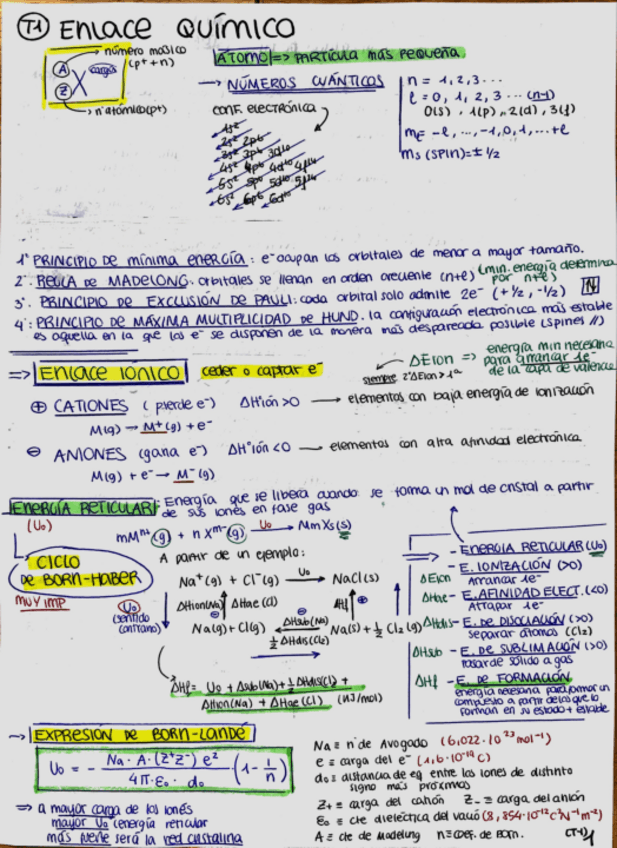 T1 ENLACE QUÍMICO
número másico
(p+ + n)
A
Z
X
carga
nº atómico (p+)
ÁTOMO => PARTÍCULA MÁS PEQUEÑA
→ NÚMEROS CUÁNTICOS
CONF. ELECTRÓNICA
1s²
2s² 2p⁶
3s² 3p⁶ 3d¹⁰
4s² 4p⁶ 4d¹⁰ 4f¹⁴
5s² 5p⁶ 5d¹⁰ 5f¹⁴
6s² 6p⁶ 6d¹⁰
n = 1, 2, 3 ...
l = 0, 1, 2, 3 ... (n-1)
0(s), 1(p), 2(d), 3(f)
mₗ -l, ..., -1, 0, 1, ... +l
ms (SPIN) = ± 1/2
1º PRINCIPIO DE mínima ENERGÍA: e⁻ ocupan los orbitales de menor a mayor tamaño.
2º. REGLA DE MADELONG: orbitales se llenan en orden creciente (n+l) (min. energía determina por n+l)
3º. PRINCIPIO DE EXCLUSIÓN DE PAULI: cada orbital solo admite 2e⁻ (+1/2, -1/2)
4º: PRINCIPIO DE MÁXIMA MULTIPLICIDAD DE HUND. la configuración electrónica más estable
es aquella en la que los e⁻ se disponen de la manera más despareada posible (spines //)
=> ENLACE IÓNICO ceder o captar e⁻
ΔEion => energía min necesaria
para arrancar 1e⁻
de la capa de valencia
siempre 2ªΔEion > 1ª
⊕ CATIONES (pierde e⁻) ΔHºión >0 → elementos con baja energía de ionización
M(g) → M⁺(g) + e⁻
⊖ ANIONES (gana e⁻) ΔHºión <0 → elementos con alta afinidad electrónica
M(g) + e⁻ → M⁻(g)
ENERGÍA RETICULAR: Energía que se libera cuando se forma un mol de cristal a partir
de sus iones en fase gas
(U₀)
mMⁿ⁺(g) + nXᵐ⁻(g) U₀→ MmXs(s)
CICLO
DE BORN-HABER
MUY IMP
A partir de un ejemplo:
Na⁺(g) + Cl⁻(g) U₀→ NaCl(s)
U₀
(sentido
contrario)
ΔHion(Na) ΔHae(Cl) ΔHf
Na(g) + Cl(g) ΔHsub(Na) 1/2 ΔHdis(Cl₂) Na(s) + 1/2 Cl₂(g)
ΔHf = U₀ + Δsub(Na) + 1/2 ΔHdis(Cl) +
ΔHion(Na) + ΔHae(Cl) (KJ/mol)
- ENERGÍA RETICULAR (U₀)
ΔEion - E. IONIZACIÓN (>0)
Arrancar 1e⁻
ΔHae - E. AFINIDAD ELECT. (<0)
Atrapar 1e⁻
ΔHdis - E. DE DISOCIACIÓN (>0)
separar átomos (Cl₂)
ΔHsub - E. DE SUBLIMACIÓN (>0)
pasar de sólido a gas
ΔHf - E. DE FORMACIÓN
energía necesaria para formar un
compuesto a partir de los que lo
forman en su estado + estable
→ EXPRESIÓN DE BORN-LANDÉ
U₀ = - Na · A · (Z⁺Z⁻) e² / 4π · ε₀ · d₀ (1 - 1/n)
=> a mayor carga de los iones
mayor U₀ (energía reticular
más fuerte será la red cristalina
Na ≡ nº de Avogado (6,022·10²³ mol⁻¹)
e ≡ carga del e⁻ (1,6·10⁻¹⁹ C)
d₀ ≡ distancia de eq entre los iones de distinto
signo más próximos
Z+ ≡ carga del catión Z- ≡ carga del anión
ε₀ ≡ cte dieléctrica del vacío (8,854·10⁻¹² C²N⁻¹m⁻²)
A ≡ cte de Madelung n ≡ coef. de Born.
CT-1/1